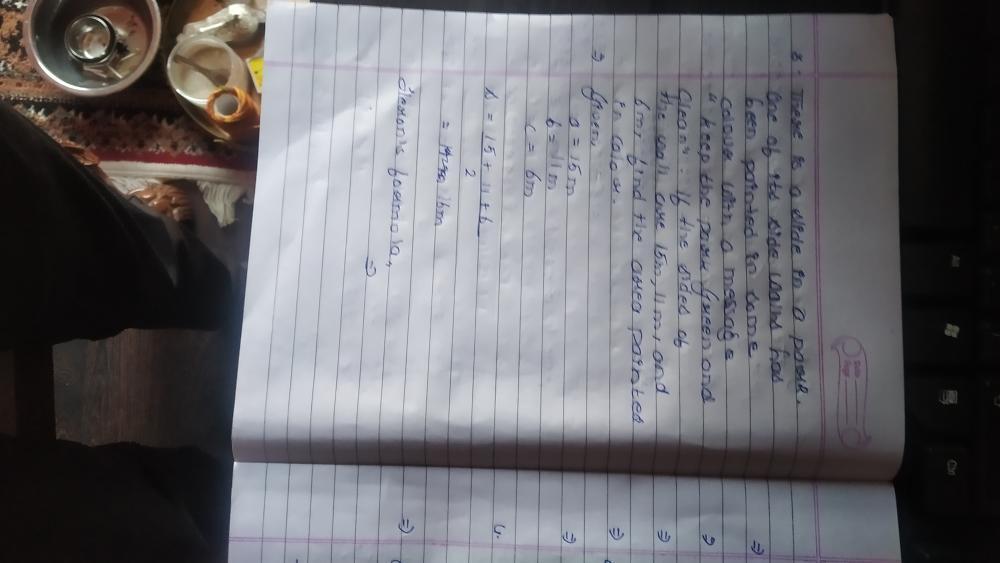 8. There is a slide in a park.
One of its side walls has
been painted in some
colour with a message
" keep the park green and
clean". If the sides of
the wall are 15m, 11m, and
6m, find the area painted
in colour.
⇒ Given,
a = 15m
b = 11m
c = 6m
s = 15 + 11 + 6
2
= 16m
Heron's formula,
⇒
⇒
9
⇒
⇒
⇒
4.
⇒
Alt
Ctrl